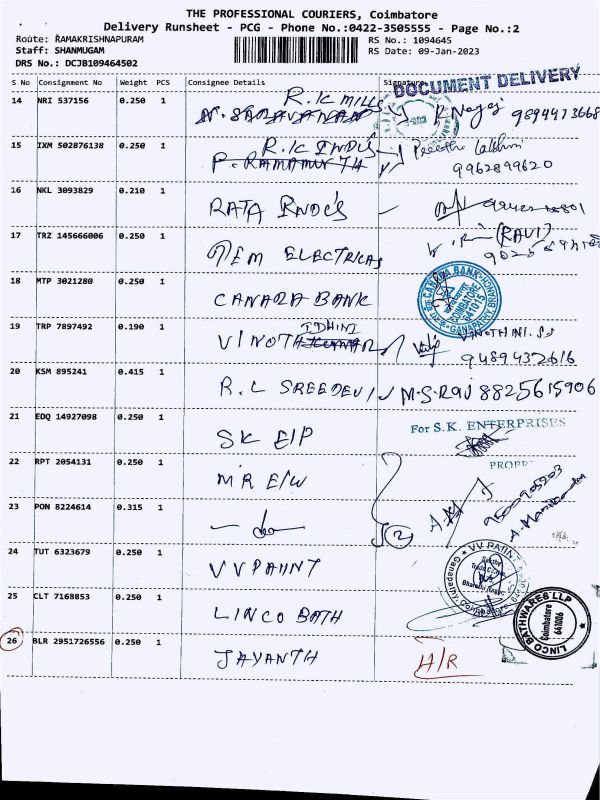 THE PROFESSIONAL COURIERS, Coimbatore
Delivery Runsheet - PCG - Phone No.:0422-3505555 - Page No.:2
Route: RAMAKRISHNAPURAM
RS No.: 1094645
Staff: SHANMUGAM
RS Date: 09-Jan-2023
DRS No.: DCJB109464502
S No Consignment No Weight PCS Consignee Details Signature
DOCUMENT DELIVERY
14 NRI 537156 0.250 1 R.K MILLS
N. SARAVANAN
15 IXM 502876138 0.250 1 R.K INDS
P. RAMAMURTH
9962899620
16 NKL 3093829 0.210 1 RATA INDS
17 TRZ 145666006 0.250 1 GEM ELECTRICAS (RAVI)
18 MTP 3021280 0.250 1 CANARA BANK
CANARA BANK
COIMBATORE
641015
GANAPATHY BRANCH
19 TRP 7897492 0.190 1 VINOTHINI
9489432616
20 KSM 895241 0.415 1 R.L SREEDEVI M.S.RAJ 8825615906
21 EDQ 14927098 0.250 1 SK EIP
For S.K. ENTERPRISES
22 RPT 2054131 0.250 1 MR E/W
23 PON 8224614 0.315 1 — do —
(2)
9500905203
24 TUT 6323679 0.250 1 VV PAINT
25 CLT 7168853 0.250 1 LINCO BATH
LINCO BATHWARES LLP
Coimbatore
641006
26 BLR 2951726556 0.250 1 JAYANTH H/R